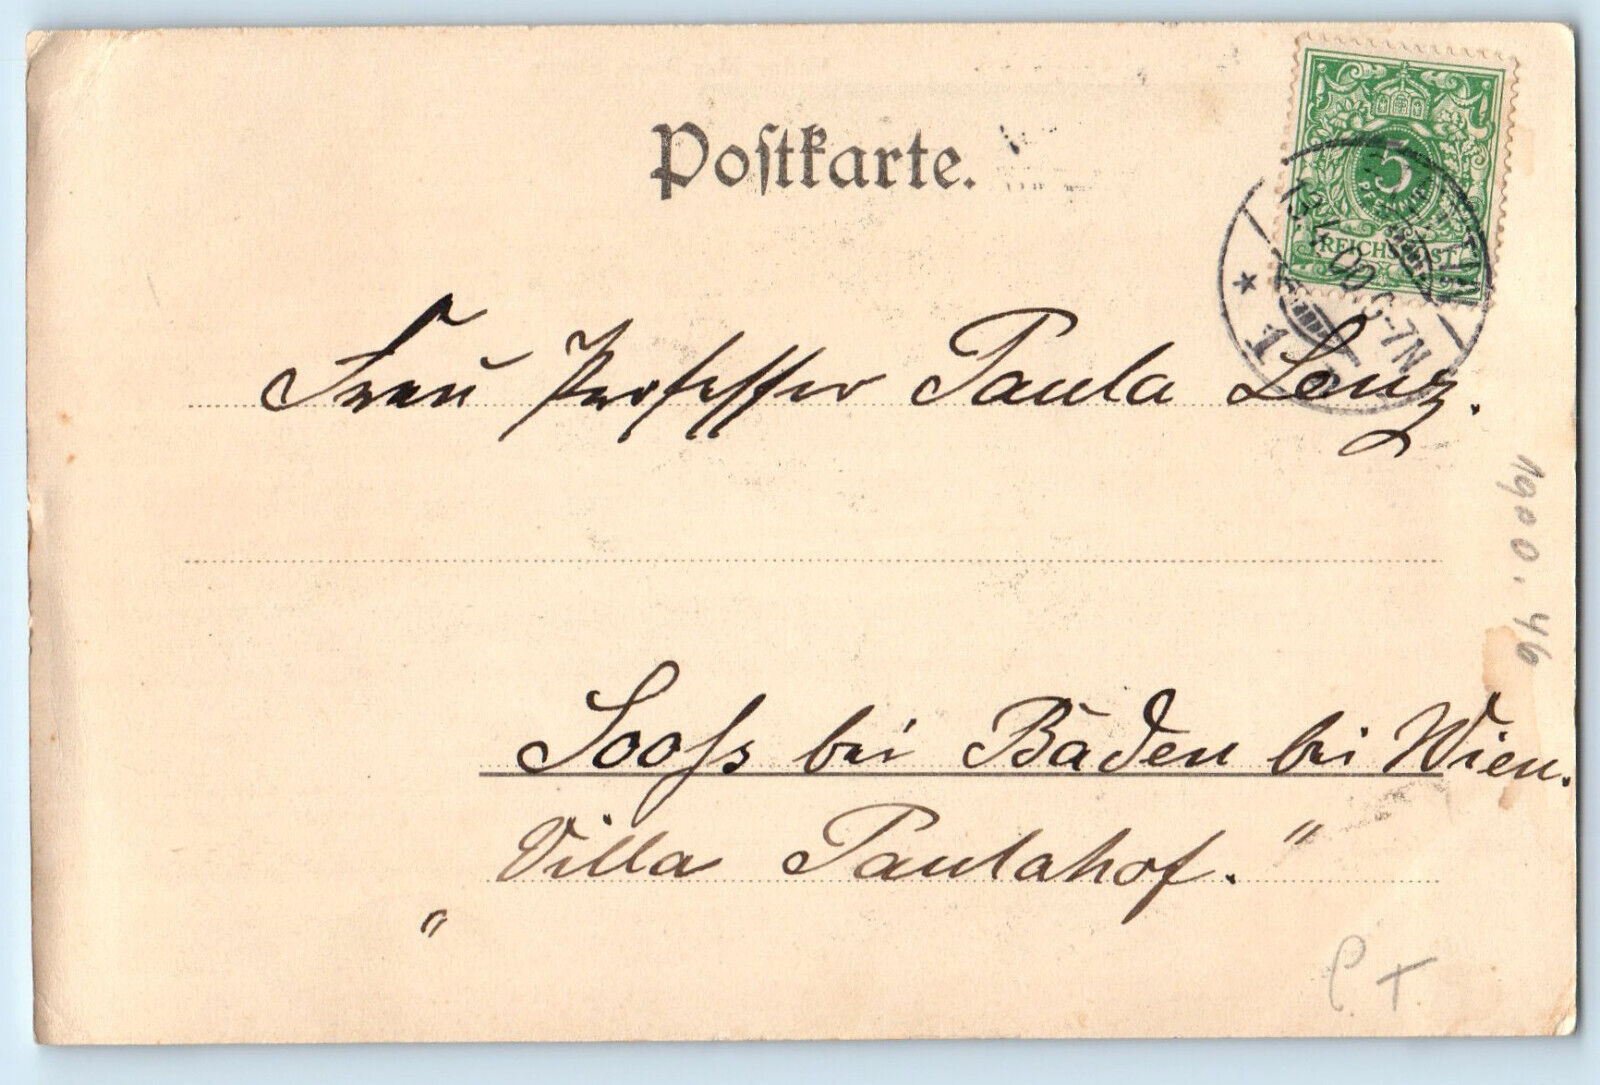 Postkarte.
5
PFENNIG
REICHSPOST
13.4.00 6-7N
* 1
Frau Professor Paula Lenz.
1900.46
Sooss bei Baden bei Wien.
„Villa Paulahof.“
C. T.